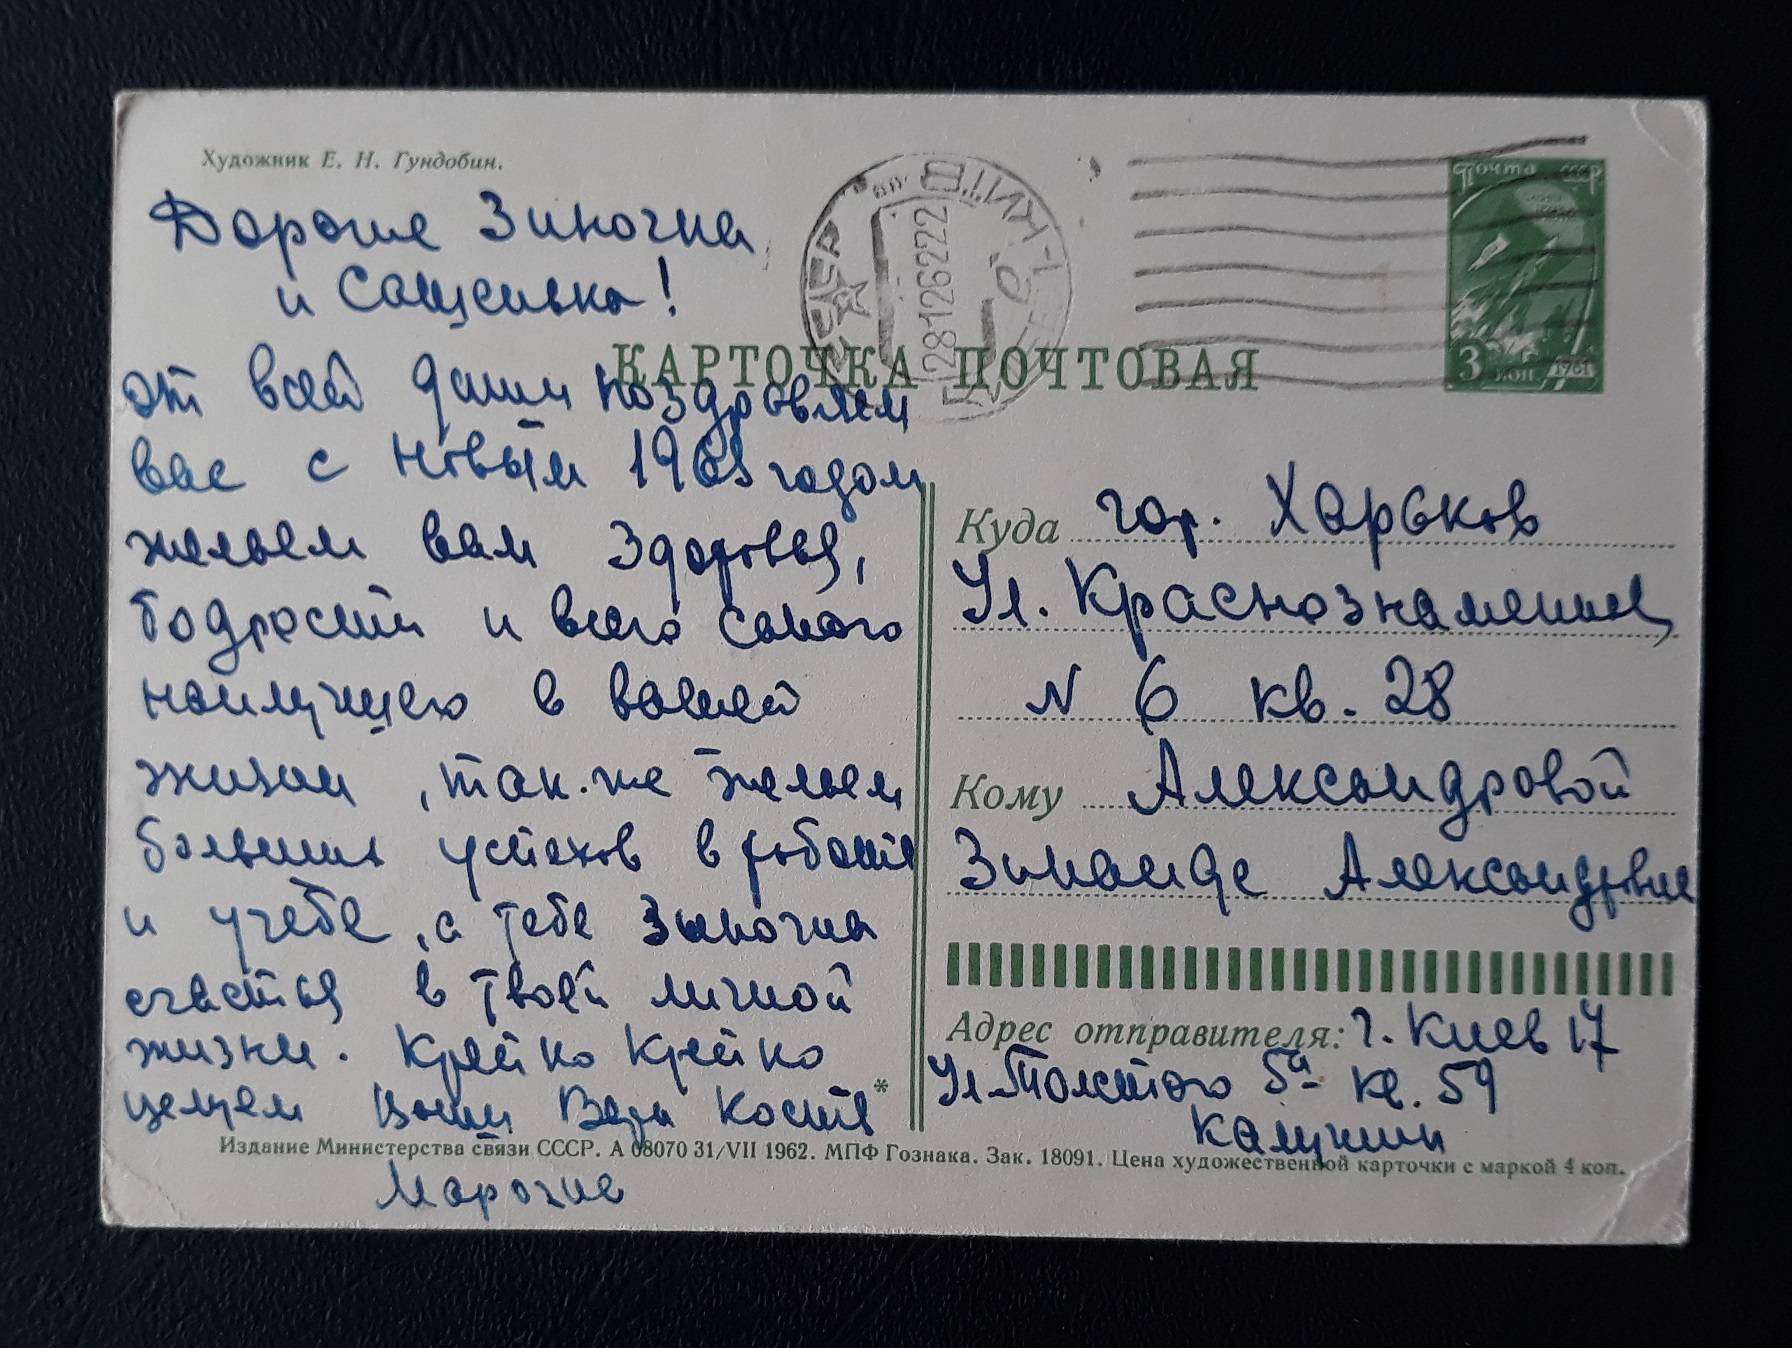 Художник Е. Н. Гундобин.
Дорогие Зиночка
и Сашенька!
от всей души поздровляем
вас с новым 1963 годом
желаем вам здоровья,
бодрости и всего самого
наилучшего в вашей
жизни, так-же желаем
больших успехов в работе
и учебе, а тебе Зиночка
счастья в твоей личной
жизни. Крепко Крепко
целуем Ваши Вера Костя
КАРТОЧКА ПОЧТОВАЯ
Почта СССР
3 коп. 1961
СССР
281262 22
Куда гор. Харьков
Ул. Краснознаменная,
N 6 кв. 28
Кому Александровой
Зинаиде Александровне
Адрес отправителя: г. Киев 17
Ул. Толстого 5а кв. 59
*
Издание Министерства связи СССР. А 08070 31/VII 1962. МПФ Гознака. Зак. 18091. Цена художественной карточки с маркой 4 коп.